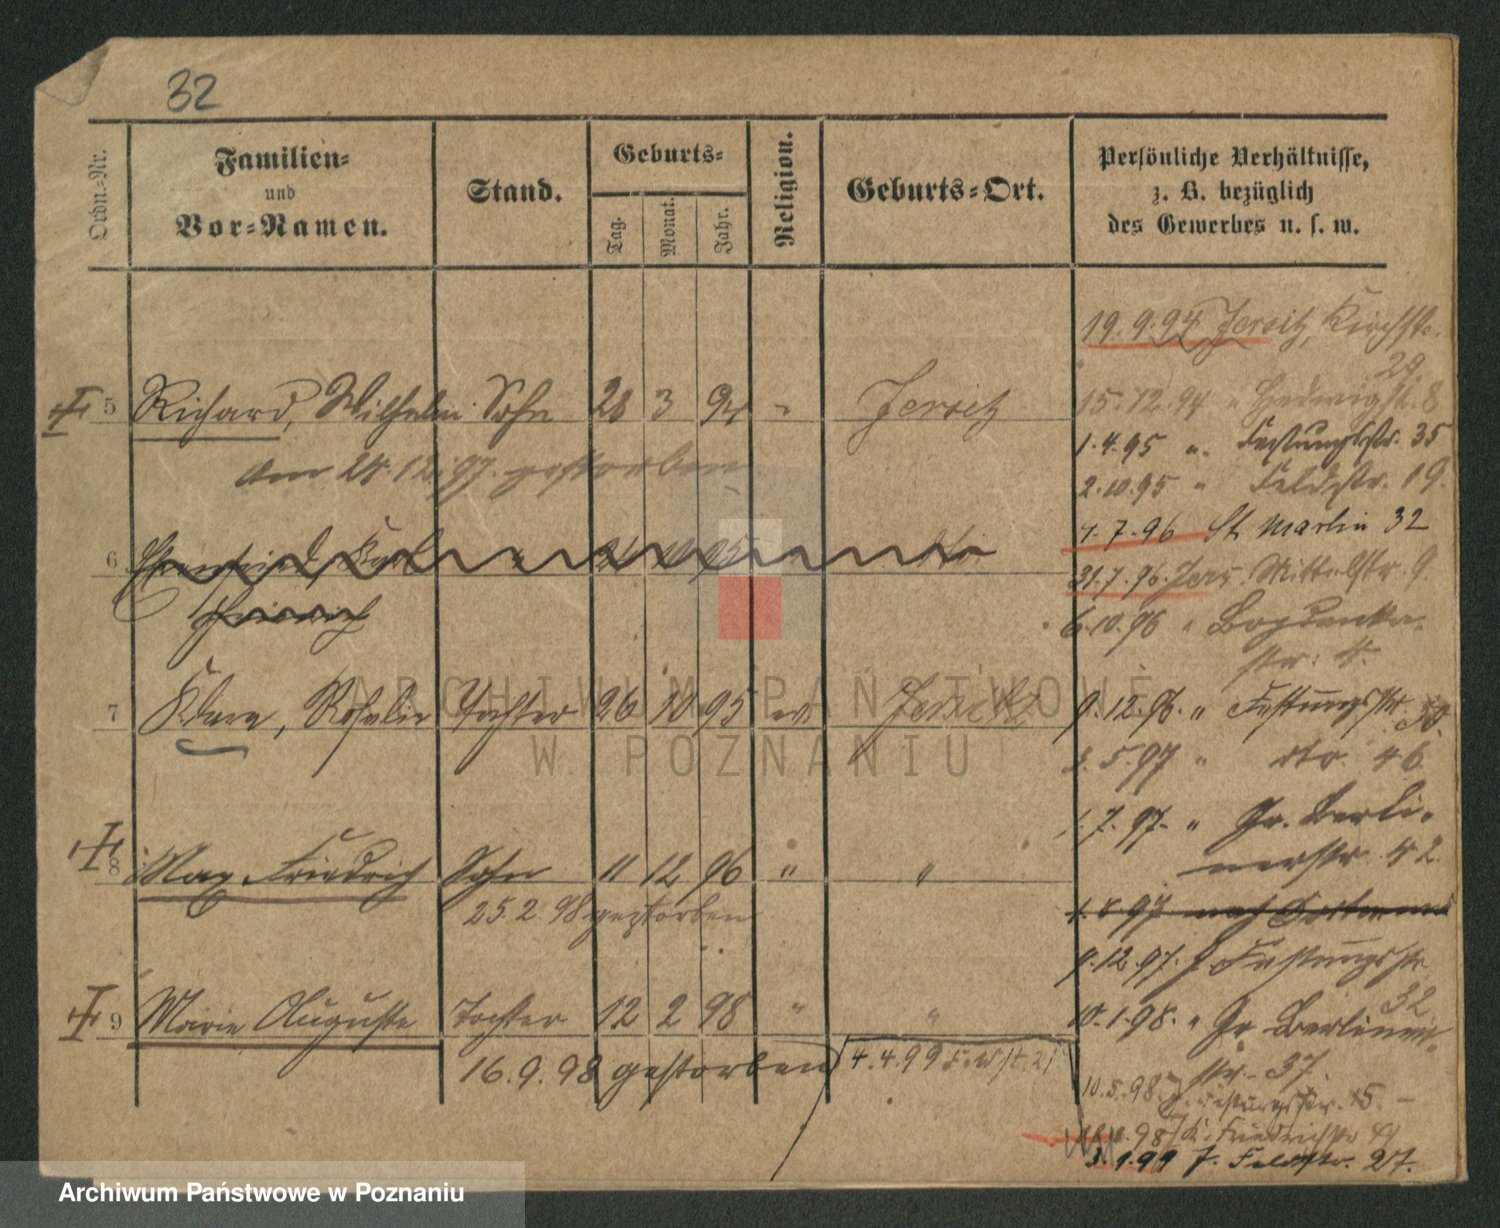 32
Ordn.-Nr.
Familien-
und
Vor-Namen.
Stand.
Geburts-
Tag.
Monat.
Jahr.
Religion.
Geburts-Ort.
Persönliche Verhältnisse,
z. B. bezüglich
des Gewerbes u. s. w.
19.9.94 Jersitz, Kirchstr.
29
5 Richard, Wilhelm Sohn 28 3 94 " Jersitz
15.12.94 " Hedwigstr. 8
1.4.95 " Festungsstr. 35
am 28.12.97. gestorben
2.10.95 " Feldstr. 19.
1.7.96 St Martin 32
6 Karl
Heinrich
31.7.96. Jers. Mittelstr. 9.
6.10.96 " Bogdanka-
str. 4.
7 Klara, Rosalie Tochter 26 10 95 ev. Jersitz
9.12.96. " Festungsstr.
3.5.97 " dto. 46
1.7.97. " Gr. Berli-
nerstr. 42.
8 Max Friedrich Sohn 11 12 96 " "
25.2.98 gestorben
1.8.97 nach
9.12.97. J. Festungsstr.
32
9 Marie Auguste Tochter 12 2 98 " "
10.1.98. " Gr. Berliner-
str. 37.
16.9.98 gestorben
4.4.99
10.5.98. J. Festungsstr. 45.
98 K. Friedrichstr
3.1.99 J. Feldstr. 27.
ARCHIWUM PAŃSTWOWE
W POZNANIU
Archiwum Państwowe w Poznaniu